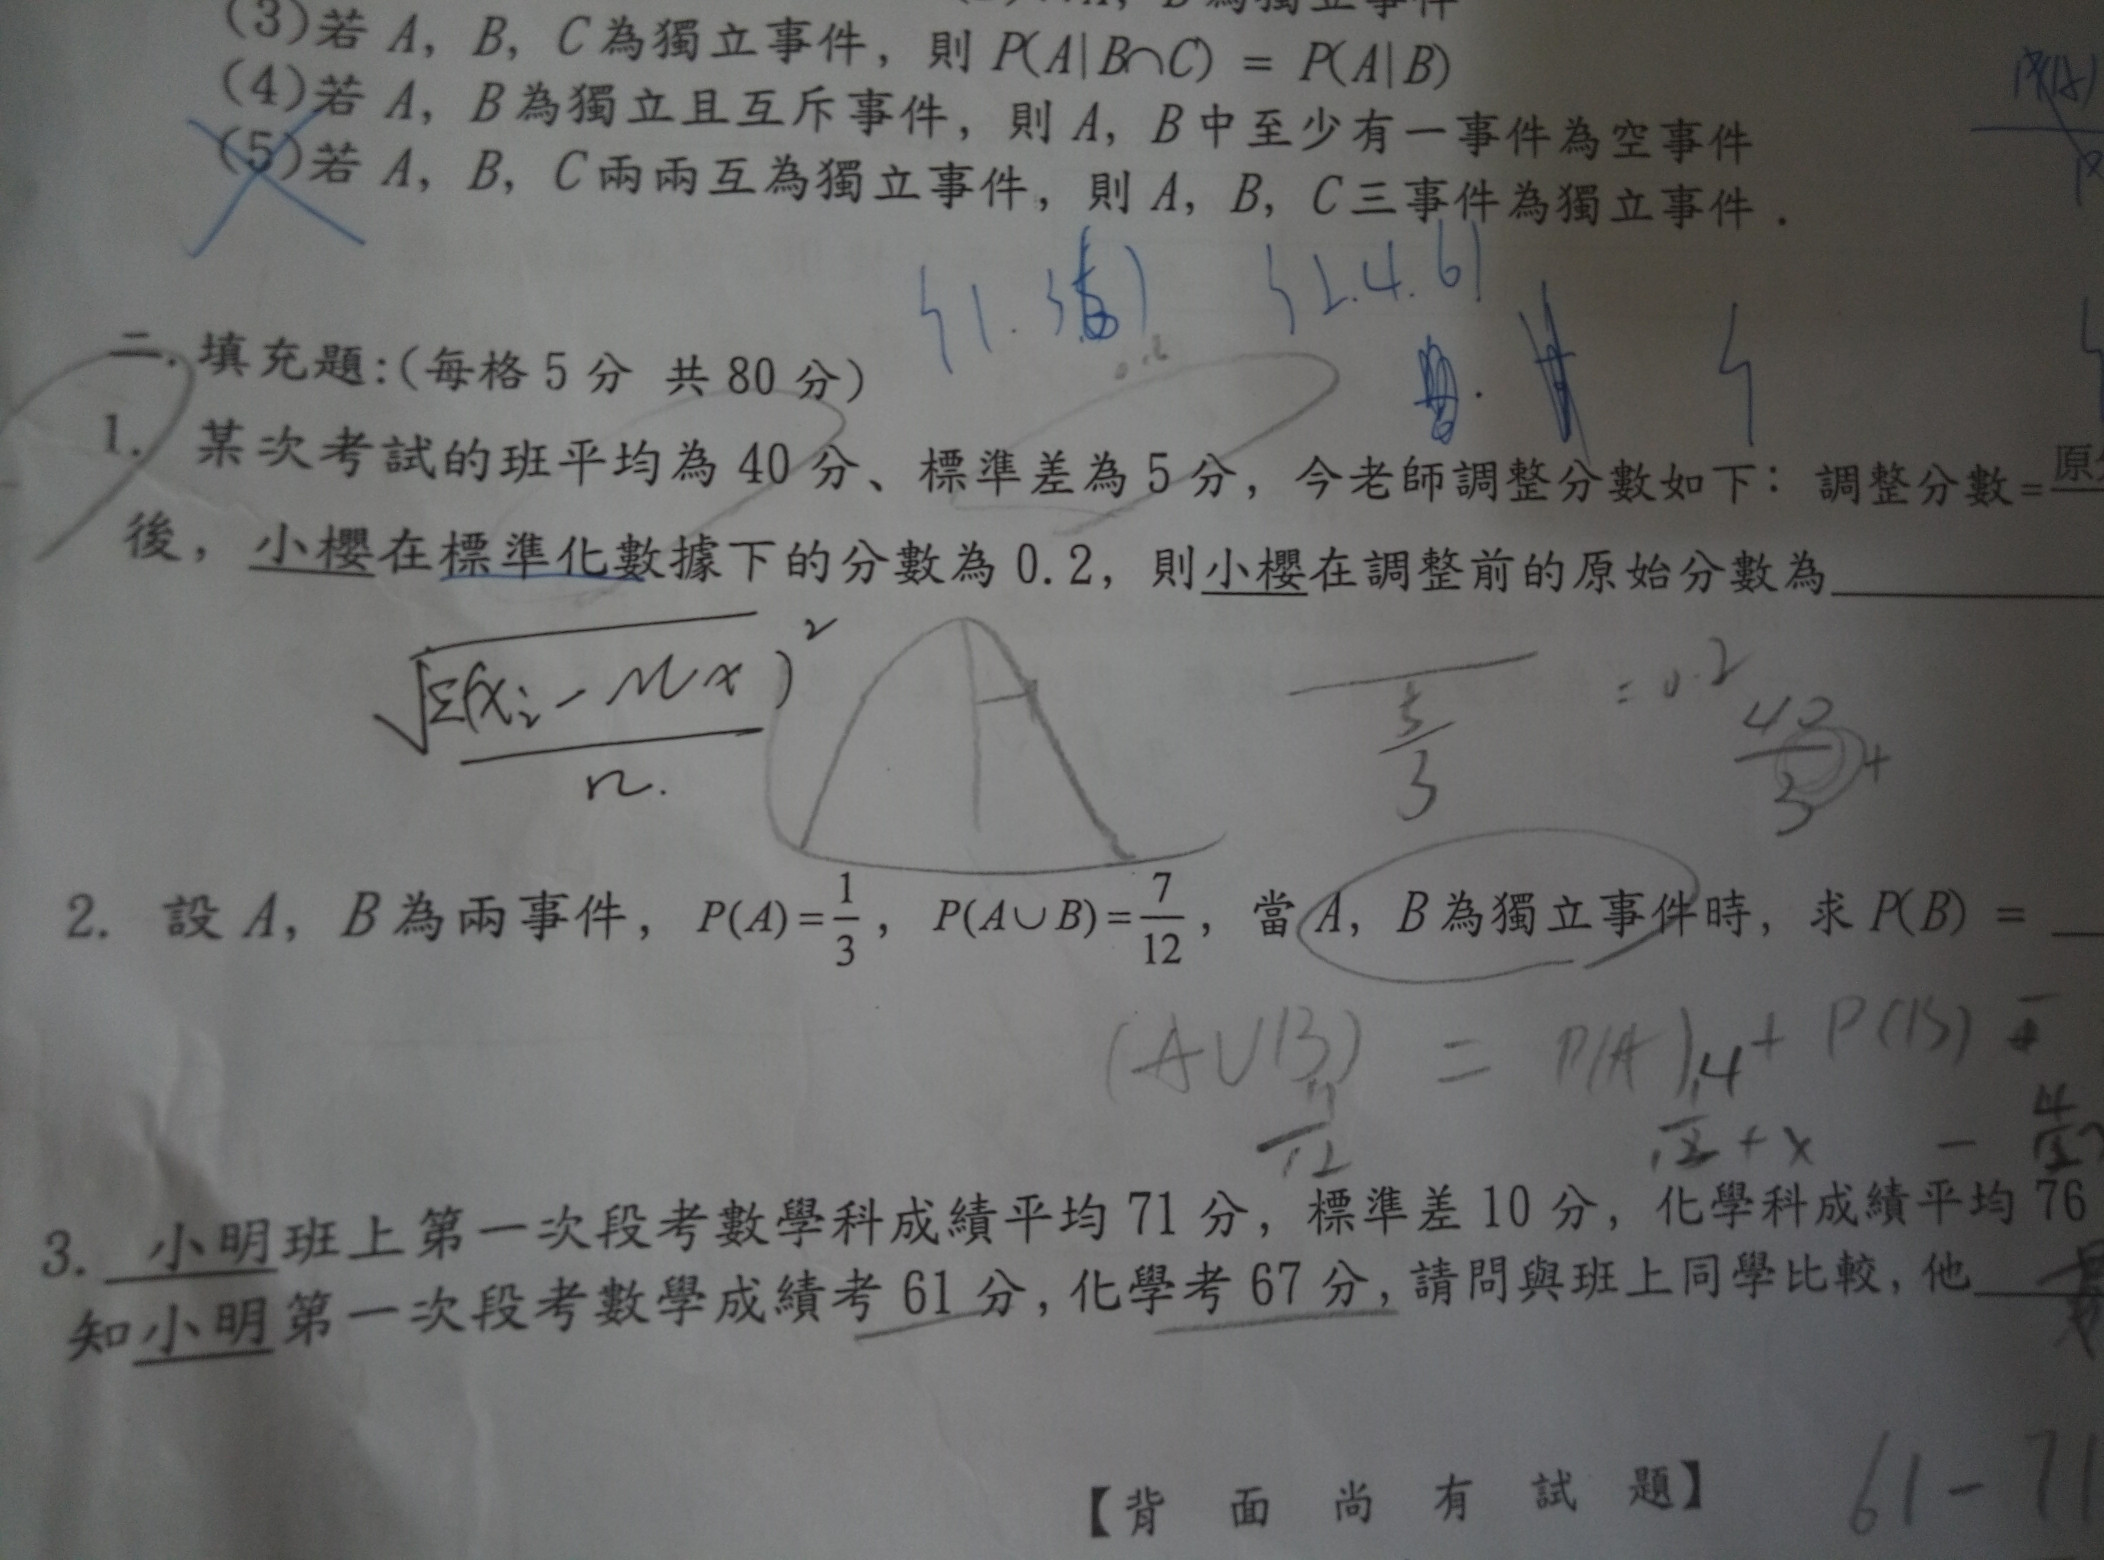 (3)若 A, B, C為獨立事件, 則 P(A|B∩C) = P(A|B)
(4)若 A, B為獨立且互斥事件, 則 A, B中至少有一事件為空事件
(5)若 A, B, C兩兩互為獨立事件, 則 A, B, C三事件為獨立事件.
{1.3
{2.4.6}
二. 填充題:(每格5分 共80分)
0.2
1. 某次考試的班平均為40分、標準差為5分, 今老師調整分數如下: 調整分數=原
後, 小櫻在標準化數據下的分數為0.2, 則小櫻在調整前的原始分數為
√Σ(xi-Mx)²/n.
5/3 = 0.2
40/3 +
2. 設 A, B為兩事件, P(A)=1/3, P(A∪B)=7/12, 當 A, B為獨立事件時, 求 P(B) =
(A∪B) = P(A) + P(B) -
12 + x -
3. 小明班上第一次段考數學科成績平均71分, 標準差10分, 化學科成績平均76
知小明第一次段考數學成績考61分, 化學考67分, 請問與班上同學比較, 他
【背 面 尚 有 試 題】
61-71